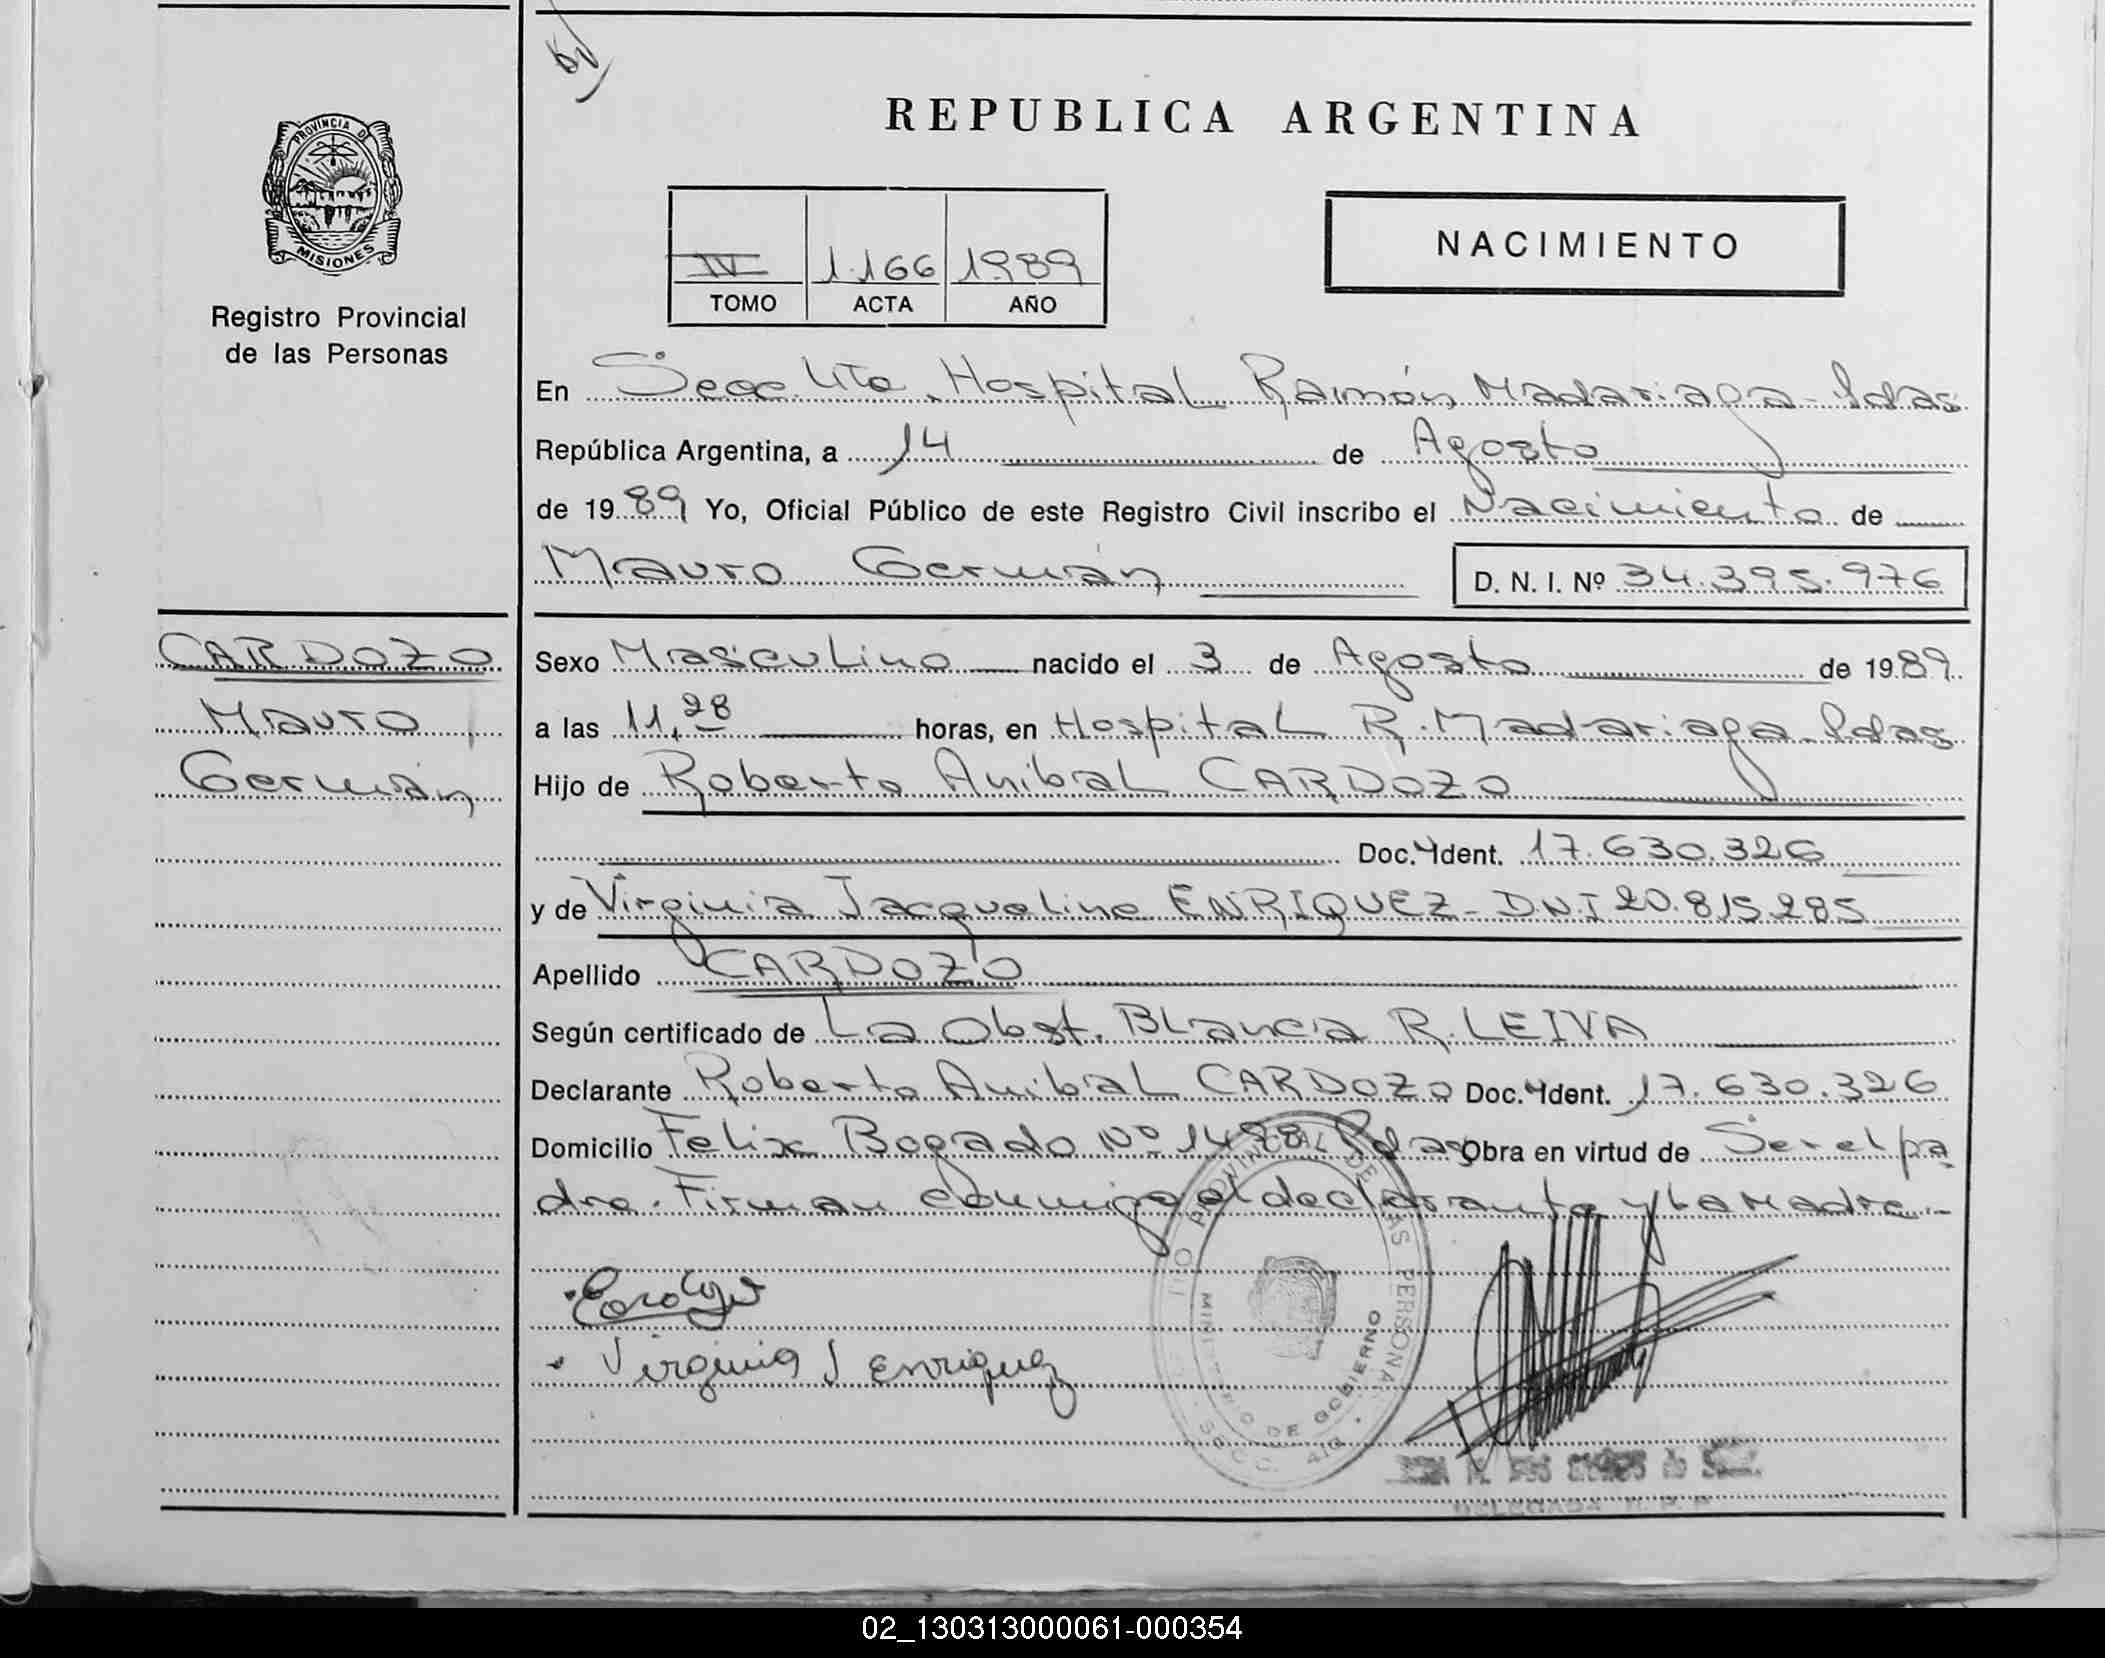 REPUBLICA ARGENTINA
PROVINCIA DE
MISIONES
Registro Provincial
de las Personas
IV 1.166 1989
TOMO ACTA AÑO
NACIMIENTO
En Hospital Ramón Madariaga - Pdas
República Argentina, a 14 de Agosto
de 1989 Yo, Oficial Público de este Registro Civil inscribo el Nacimiento de
Mauro Germán D. N. I. Nº 34.395.976
CARDOZO
Mauro
Germán
Sexo Masculino nacido el 3 de Agosto de 1989.
a las 11,28 horas, en Hospital R. Madariaga - Pdas
Hijo de Roberto Anibal CARDOZO
Doc. Ident. 17.630.326
y de Virginia Jacqueline ENRIQUEZ - DNI 20.815.285
Apellido CARDOZO
Según certificado de La Obst. Blanca R. LEIVA
Declarante Roberto Anibal CARDOZO Doc. Ident. 17.630.326
Domicilio Felix Bogado Nº 1478 Pdas Obra en virtud de Ser el pa
dre. Firman conmigo el declarante y la Madre.-
Virginia J Enriquez
PROVINCIAL DE LAS PERSONAS
MINISTERIO DE GOBIERNO
SECC.
DELEGADA R. P. P.
02_130313000061-000354